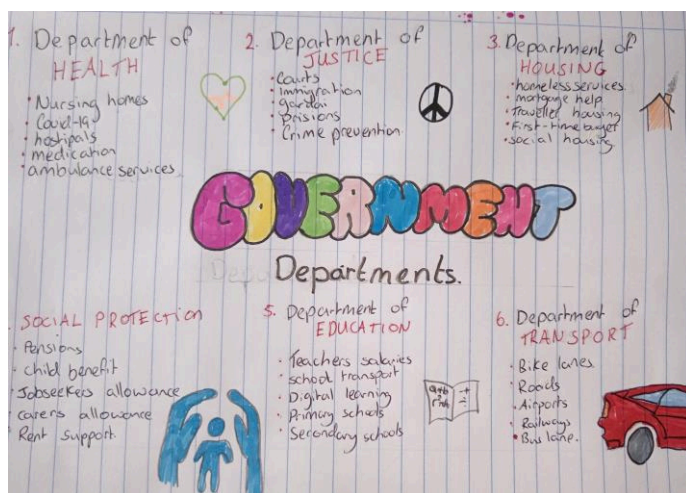 1. Department of
HEALTH
• Nursing homes
• Covid-19
• hostipals
• medication
• ambulance services
2. Department of
JUSTICE
• Courts
• Immigration
• gardai
• Prisions
• Crime prevention
3. Department of
HOUSING
• homeless services.
• mortgage help
• Traveller housing
• First-time buyer
• social housing
GOVERNMENT
Departments.
SOCIAL PROTECTION
• Pensions
• child benefit
• Jobseekers allowance
• carers allowance
• Rent support
5. Department of
EDUCATION
• Teachers salaries
• school transport
• Digital learning
• Primary schools
• Secondary schools
6. Department of
TRANSPORT
• Bike lanes
• Roads
• Airports
• Railways
• Bus lane.